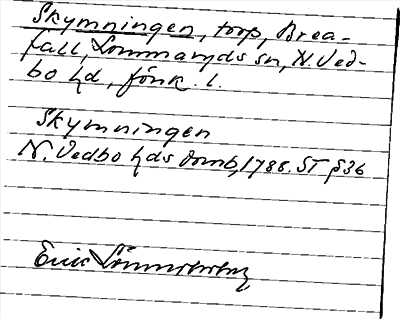 Skymningen, torp, Brea-
fall, Lommaryds sn, N. Ved-
bo hd, Jönk. l.
Skymningen
N. Vedbo hds domb, 1788. ST § 36
Eric